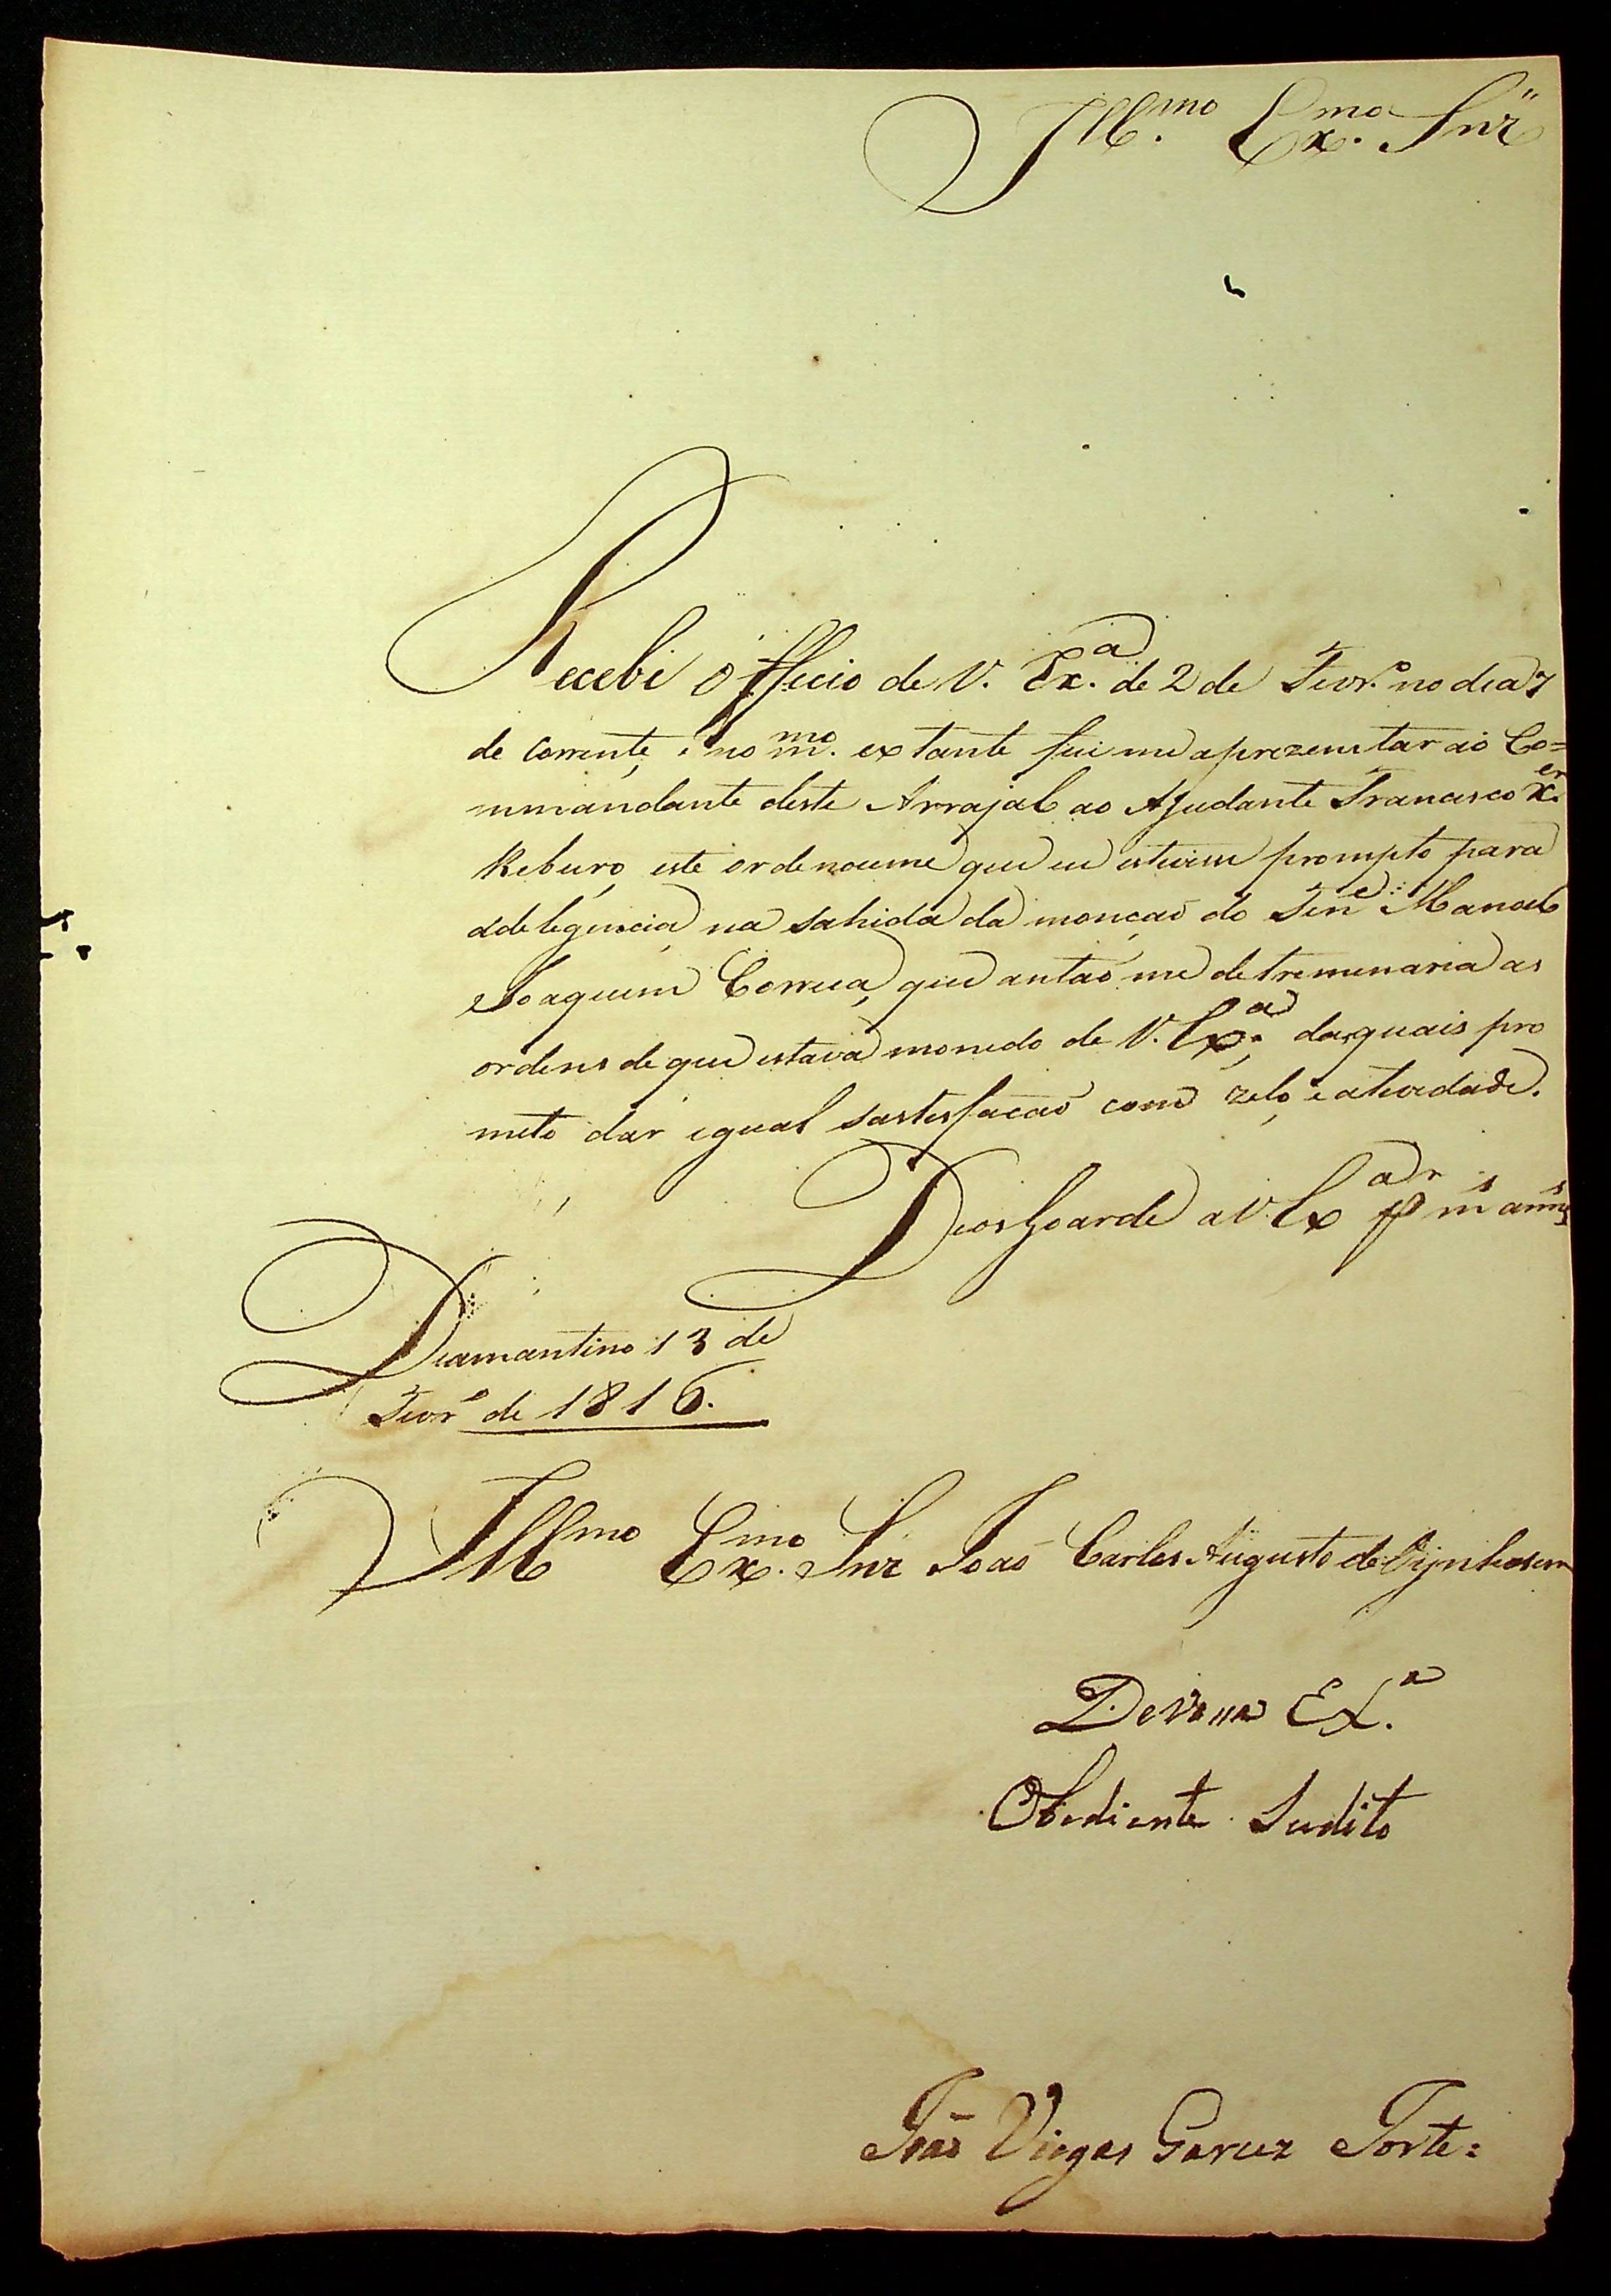 Ill.mo Ex.mo Snr
Recebi Officio de V. Ex.a de 2 de Fevr.o no dia 7
de Corrente, e no m.mo extante fui me aprezentar ao Co=
mmandante deste Arrajal ao Ajudante Francisco X.er
Reburo, este ordenoume que eu estivese prompto para
adelegencia, na sahida da monção do Ten.e Manoel
Joaquim Correia, que antaõ me detreminaria as
ordens de que estava monido de V. Ex.a, das quais pro
meto dar igual sastesfacaõ com zelo, e atevedade.
Deos Goarde a V. Ex.a p.r m.s ann.s
Diamantino 13 de
Fevr.o de 1816.
Ill.mo Ex.mo Snr João Carlos Augusto de Oijnhosem
De Vossa Ex.a
Obediente Sudito
João Viegas Forte: